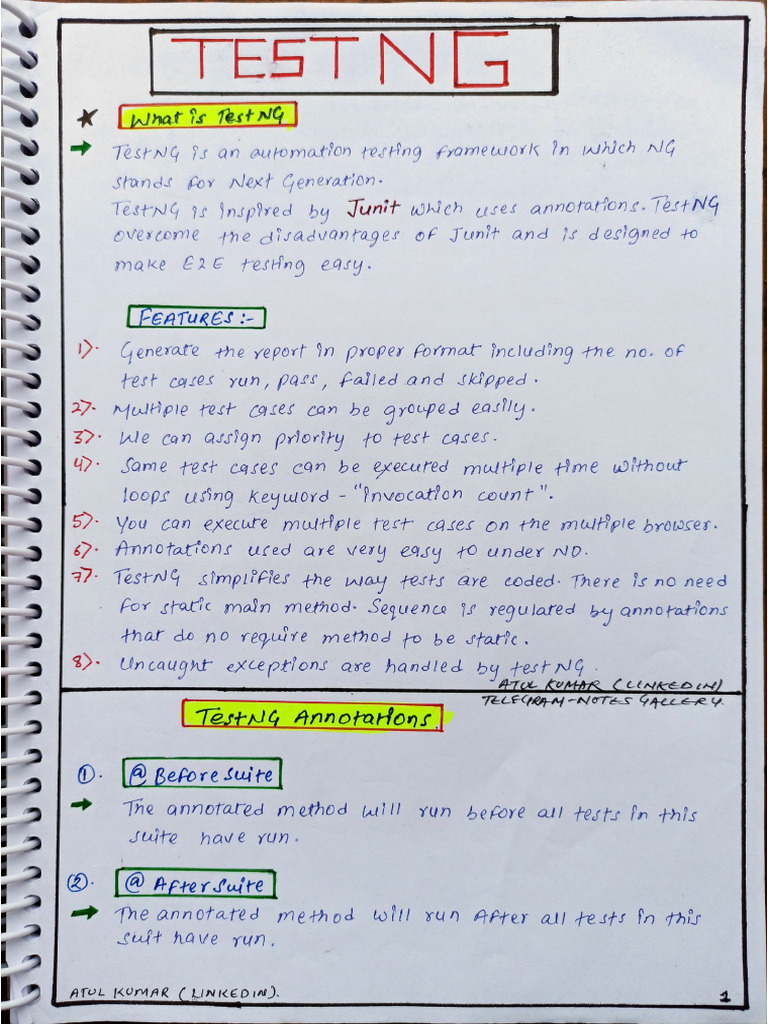 TESTNG
What is TestNG
TestNG is an automation testing framework in which NG
stands for Next Generation.
TestNG is inspired by Junit which uses annotations. TestNG
overcome the disadvantages of Junit and is designed to
make E2E testing easy.
FEATURES:-
1). Generate the report in proper format including the no. of
test cases run, pass, failed and skipped.
2). Multiple test cases can be grouped easily.
3). We can assign priority to test cases.
4). Same test cases can be executed multiple time without
loops using keyword - "invocation count".
5). You can execute multiple test cases on the multiple browser.
6). Annotations used are very easy to under ND.
7). TestNG simplifies the way tests are coded. There is no need
for static main method. Sequence is regulated by annotations
that do no require method to be static.
8). Uncaught exceptions are handled by testNG.
- ATUL KUMAR (LINKEDIN)
TELEGRAM-NOTES GALLERY.
TestNG Annotations.
1. @BeforeSuite
The annotated method will run before all tests in this
suite have run.
2. @AfterSuite
The annotated method will run After all tests in this
suit have run.
ATUL KUMAR (LINKEDIN). 1